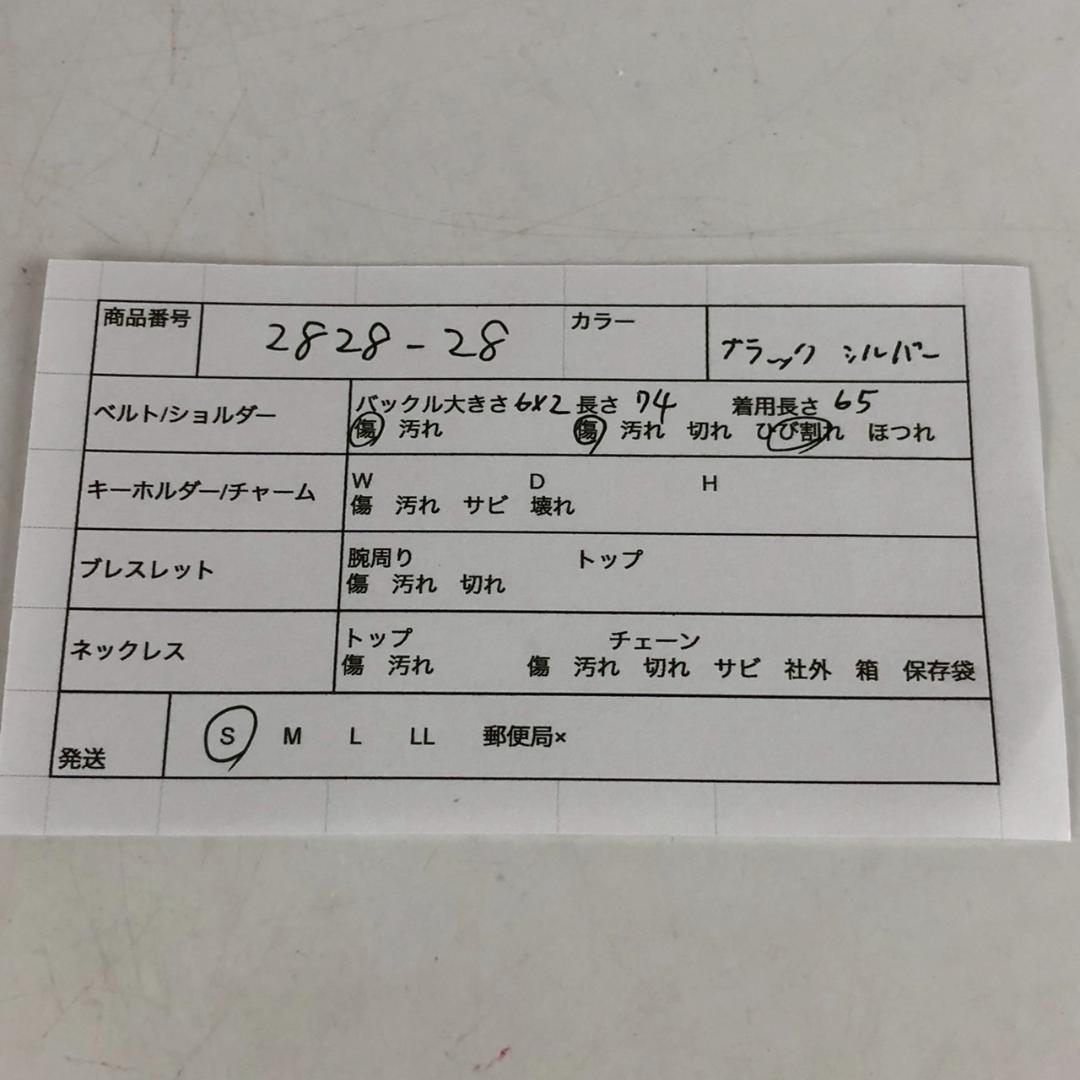 商品番号 2828-28 カラー ブラック シルバー
ベルト/ショルダー バックル大きさ 6×2 長さ 74 着用長さ 65
傷 汚れ 傷 汚れ 切れ ひび割れ ほつれ
キーホルダー/チャーム W D H
傷 汚れ サビ 壊れ
ブレスレット 腕周り トップ
傷 汚れ 切れ
ネックレス トップ チェーン
傷 汚れ 傷 汚れ 切れ サビ 社外 箱 保存袋
発送 S M L LL 郵便局×